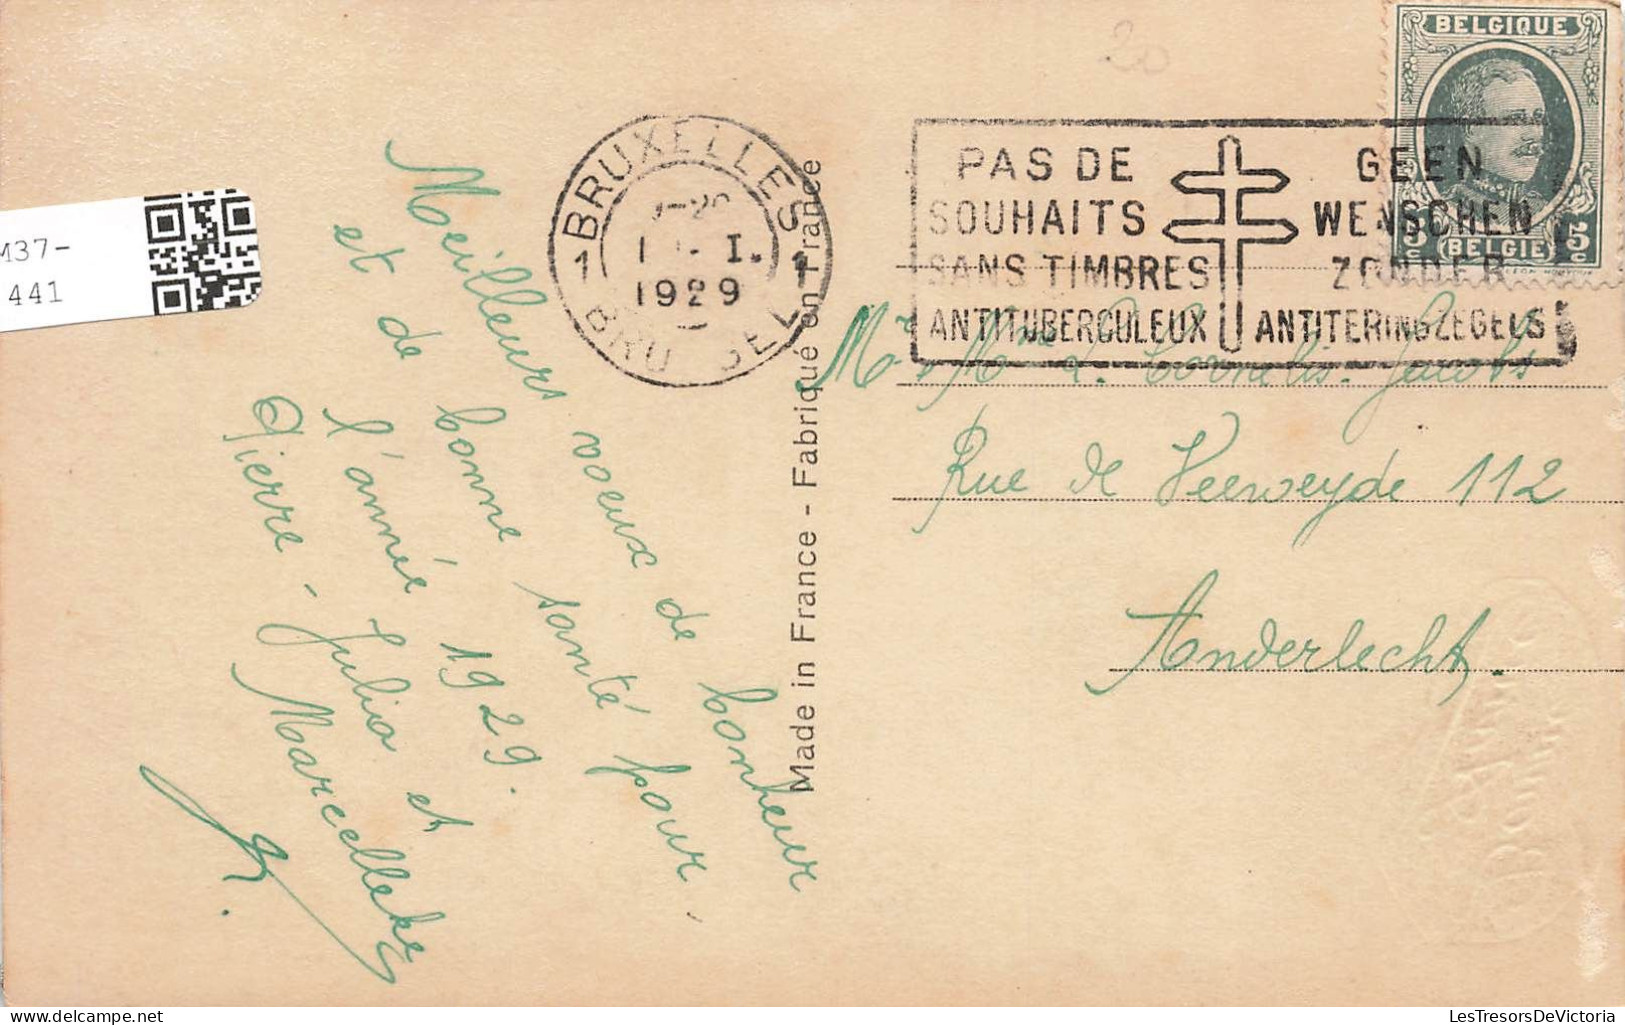 Meilleurs voeux de bonheur
et de bonne santé pour
l'année 1929.
Pierre - Julia et
Marcelleke
BRUXELLES
1 1
I.
1929
BRU SEL
Made in France - Fabriqué en France
PAS DE
SOUHAITS
SANS TIMBRES
ANTITUBERCULEUX
GEEN
WENSCHEN
ZONDER
ANTITERINGZEGELS
BELGIQUE
5c 5c
BELGIË
20
Mr & Mme Cornelis-Jacobs
Rue de Veeweyde 112
Anderlecht.
M37-
441
LesTresorsDeVictoria